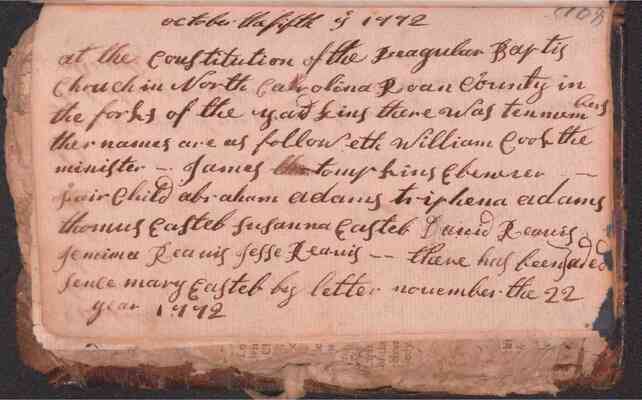 october the fifth y 1772
at the Constitution of the Reagular Baptis
Chruch in North Carolina Roan County in
the forks of the yadkins there was ten mem bers
ther names are as followeth William Cook the
minister -- James tompkins Ebenezer --
fairChild abraham adams triphena adams
thomus Easteb Susanna Easteb David Reavis
Jemima Reavis Jesse Reavis -- there has been aded
sence mary Easteb by letter november the 22
year 1772